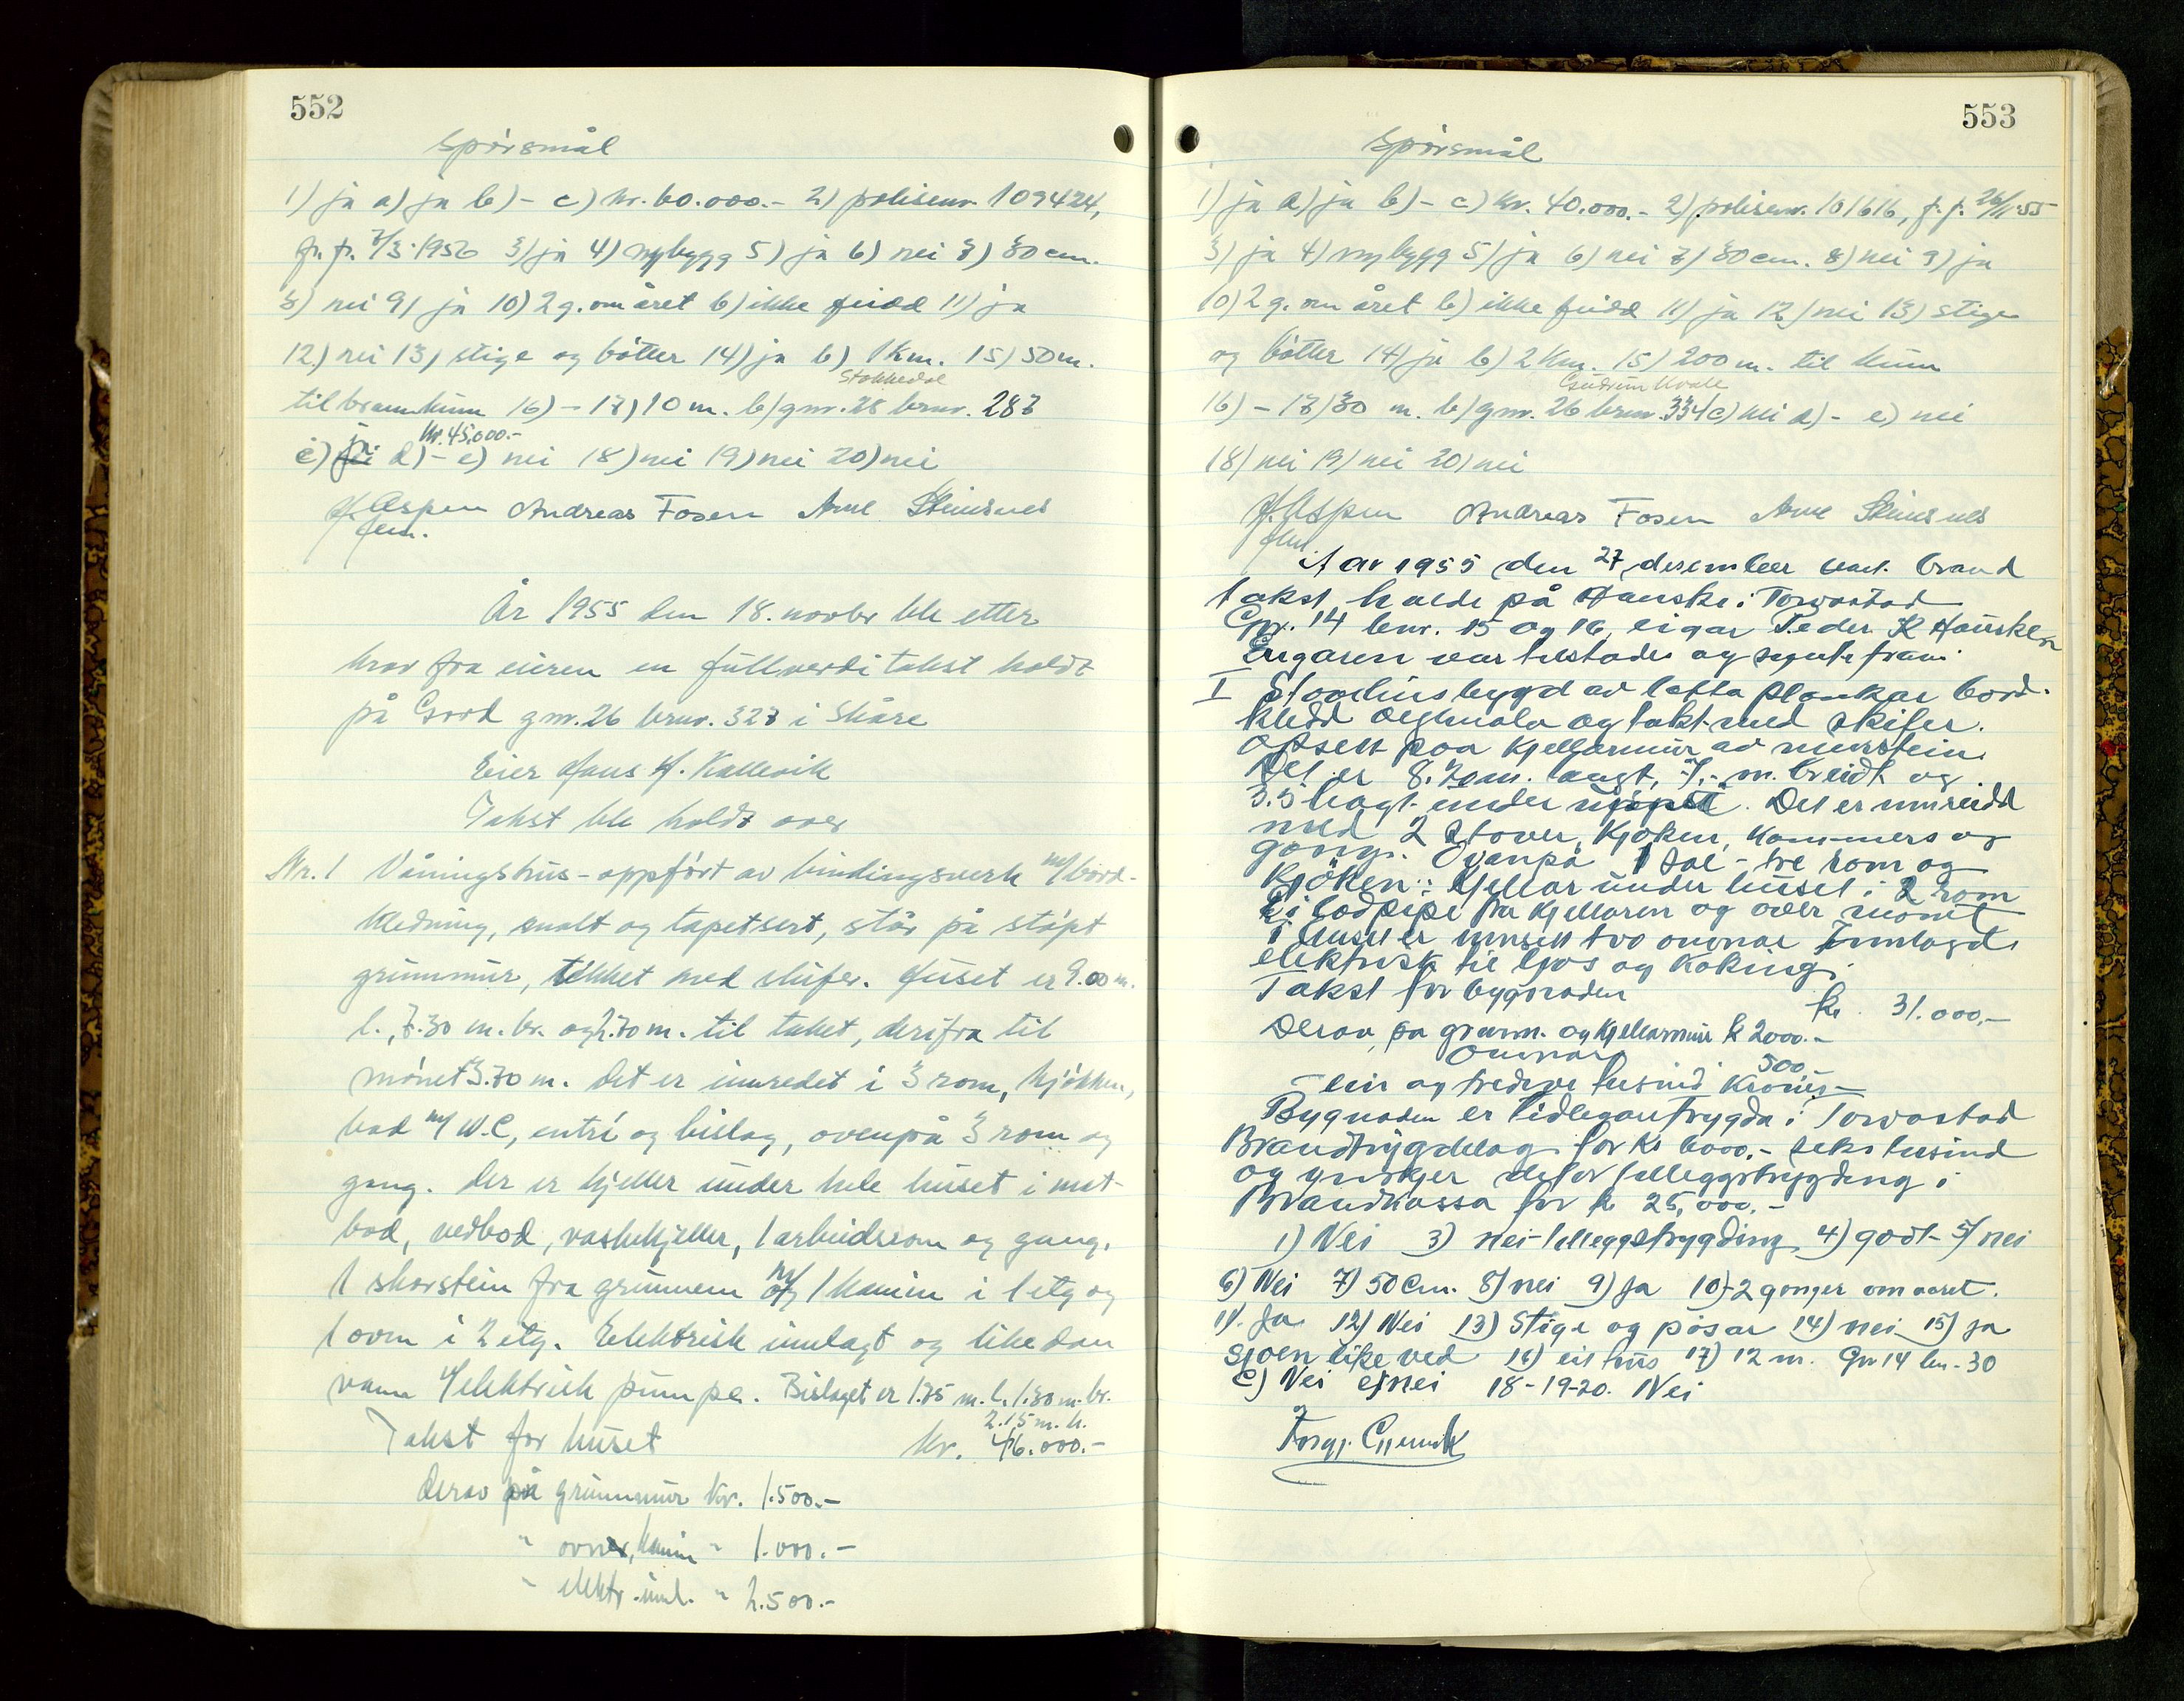 552
Spörsmål
1) ja a) ja b) - c) kr. 60.000.- 2) polisenr. 109424,
fr. p. 7/3-1956 3) ja 4) nybygg 5) ja 6) nei 7) 80 cm.
8) nei 9) ja 10) 2 g. om året b) ikke feidd 11) ja
12) nei 13) stige og bötter 14) ja b) 1 km. 15) 50 m.
Stokkedal
til brannkum 16) - 17) 10 m. b) gnr. 28 brnr. 287
ja kr. 45.000.-
c) d) - e) nei 18) nei 19) nei 20) nei
Aspen Andreas Fosen Arne Steinsnes
År 1955 den 18. novbr ble etter
krav fra eieren en fullverdi takst holdt
på Gard gnr. 26 brnr. 327 i Skåre
Eier Hans H. Kallevik
Takst ble holdt over
Nr. 1 Våningshus - oppfört av bindingsverk m/ bord-
kledning, malt og tapetsert, står på stöpt
grunnmur, tekket med skifer. Huset er 9.00 m.
l., 7.30 m. br. og 2.70 m. til taket, derifra til
mönet 3.70 m. Det er innredet i 3 rom, kjökken,
bad m/ W.C, entré og bislag, ovenpå 3 rom og
gang. Der er kjeller under hele huset i mat-
bod, vedbod, vaskekjeller, 1 arbeidsrom og gang.
1 skorstein fra grunnen m/ 1 kamin i 1 etg og
1 ovn i 2 etg. Elektrisk innlagt og likedan
vann m/ elektrisk pumpe. Bislaget er 1.75 m. l. 1.30 m. br.
2.15 m. h.
Takst for huset kr. 46.000.-
Derav på grunnmur kr. 1.500.-
" ovner, kamin " 1.000.-
" elektr. innl. " 2.500.-
553
Spörsmål
1) ja a) ja b) - c) kr. 40.000.- 2) polisenr. 101616, f. f. 26/11-55
3) ja 4) nybygg 5) ja 6) nei 7) 80 cm. 8) nei 9) ja
10) 2 g. om året b) ikke feidd 11) ja 12) nei 13) stige
og bötter 14) ja b) 2 km. 15) 200 m. til kum
Gudrun Kvale
16) - 17) 30 m. b) gnr. 26 brnr. 334 c) nei d) - e) nei
18) nei 19) nei 20) nei
Aspen Andreas Fosen Arne Steinsnes
Aar 1955 den 27 desember vart brand
takst halde på Hauske i Torvastad
Gnr. 14 bnr. 15 og 16, eigar Peder K Hausken
Eigaren var tilstades og synte fram.
I Stovehus bygd av lafta plankar bord-
kledd oljemala og takt med skifer.
Opsett paa kjellarmur av murstein.
Det er 8.70 m. langt, 7,- m. breidt og
3.5 högt under upset. Det er innreidd
med 2 stover, kjöken, kammers og
gang. Ovanpå 1 sal - tre rom og
kjöken. Kjellar under huset i 2 rom
Ei lodpipe fra kjellaren og over mönet
I huset er innsett två omnar Innlagt
elektrisk til ljos og koking.
Takst for bygnaden kr. 31.000,-
Derav på grunn. og kjellarmur k 2000.-
Omnar 500,-
- ein og tredeve tusind kroner -
Bygnaden er tidlegare trygda i Torvastad
Brandtrygdelag for kr 6000.- seks tusind
og ynskjer detor tilleggstrygding i
Brandkassa for kr 25,000.-
1) Nei 3) nei - tilleggstrygding 4) godt - 5) nei
6) Nei 7) 50 cm. 8) nei 9) Ja 10) - 2 gonger om aaret.
11. Ja 12) Nei 13) Stige og pösar 14) nei 15) ja
sjoen like ved 16) eit hus 17) 12 m. Gnr 14 bn - 30
c) Nei e) nei 18-19-20. Nei